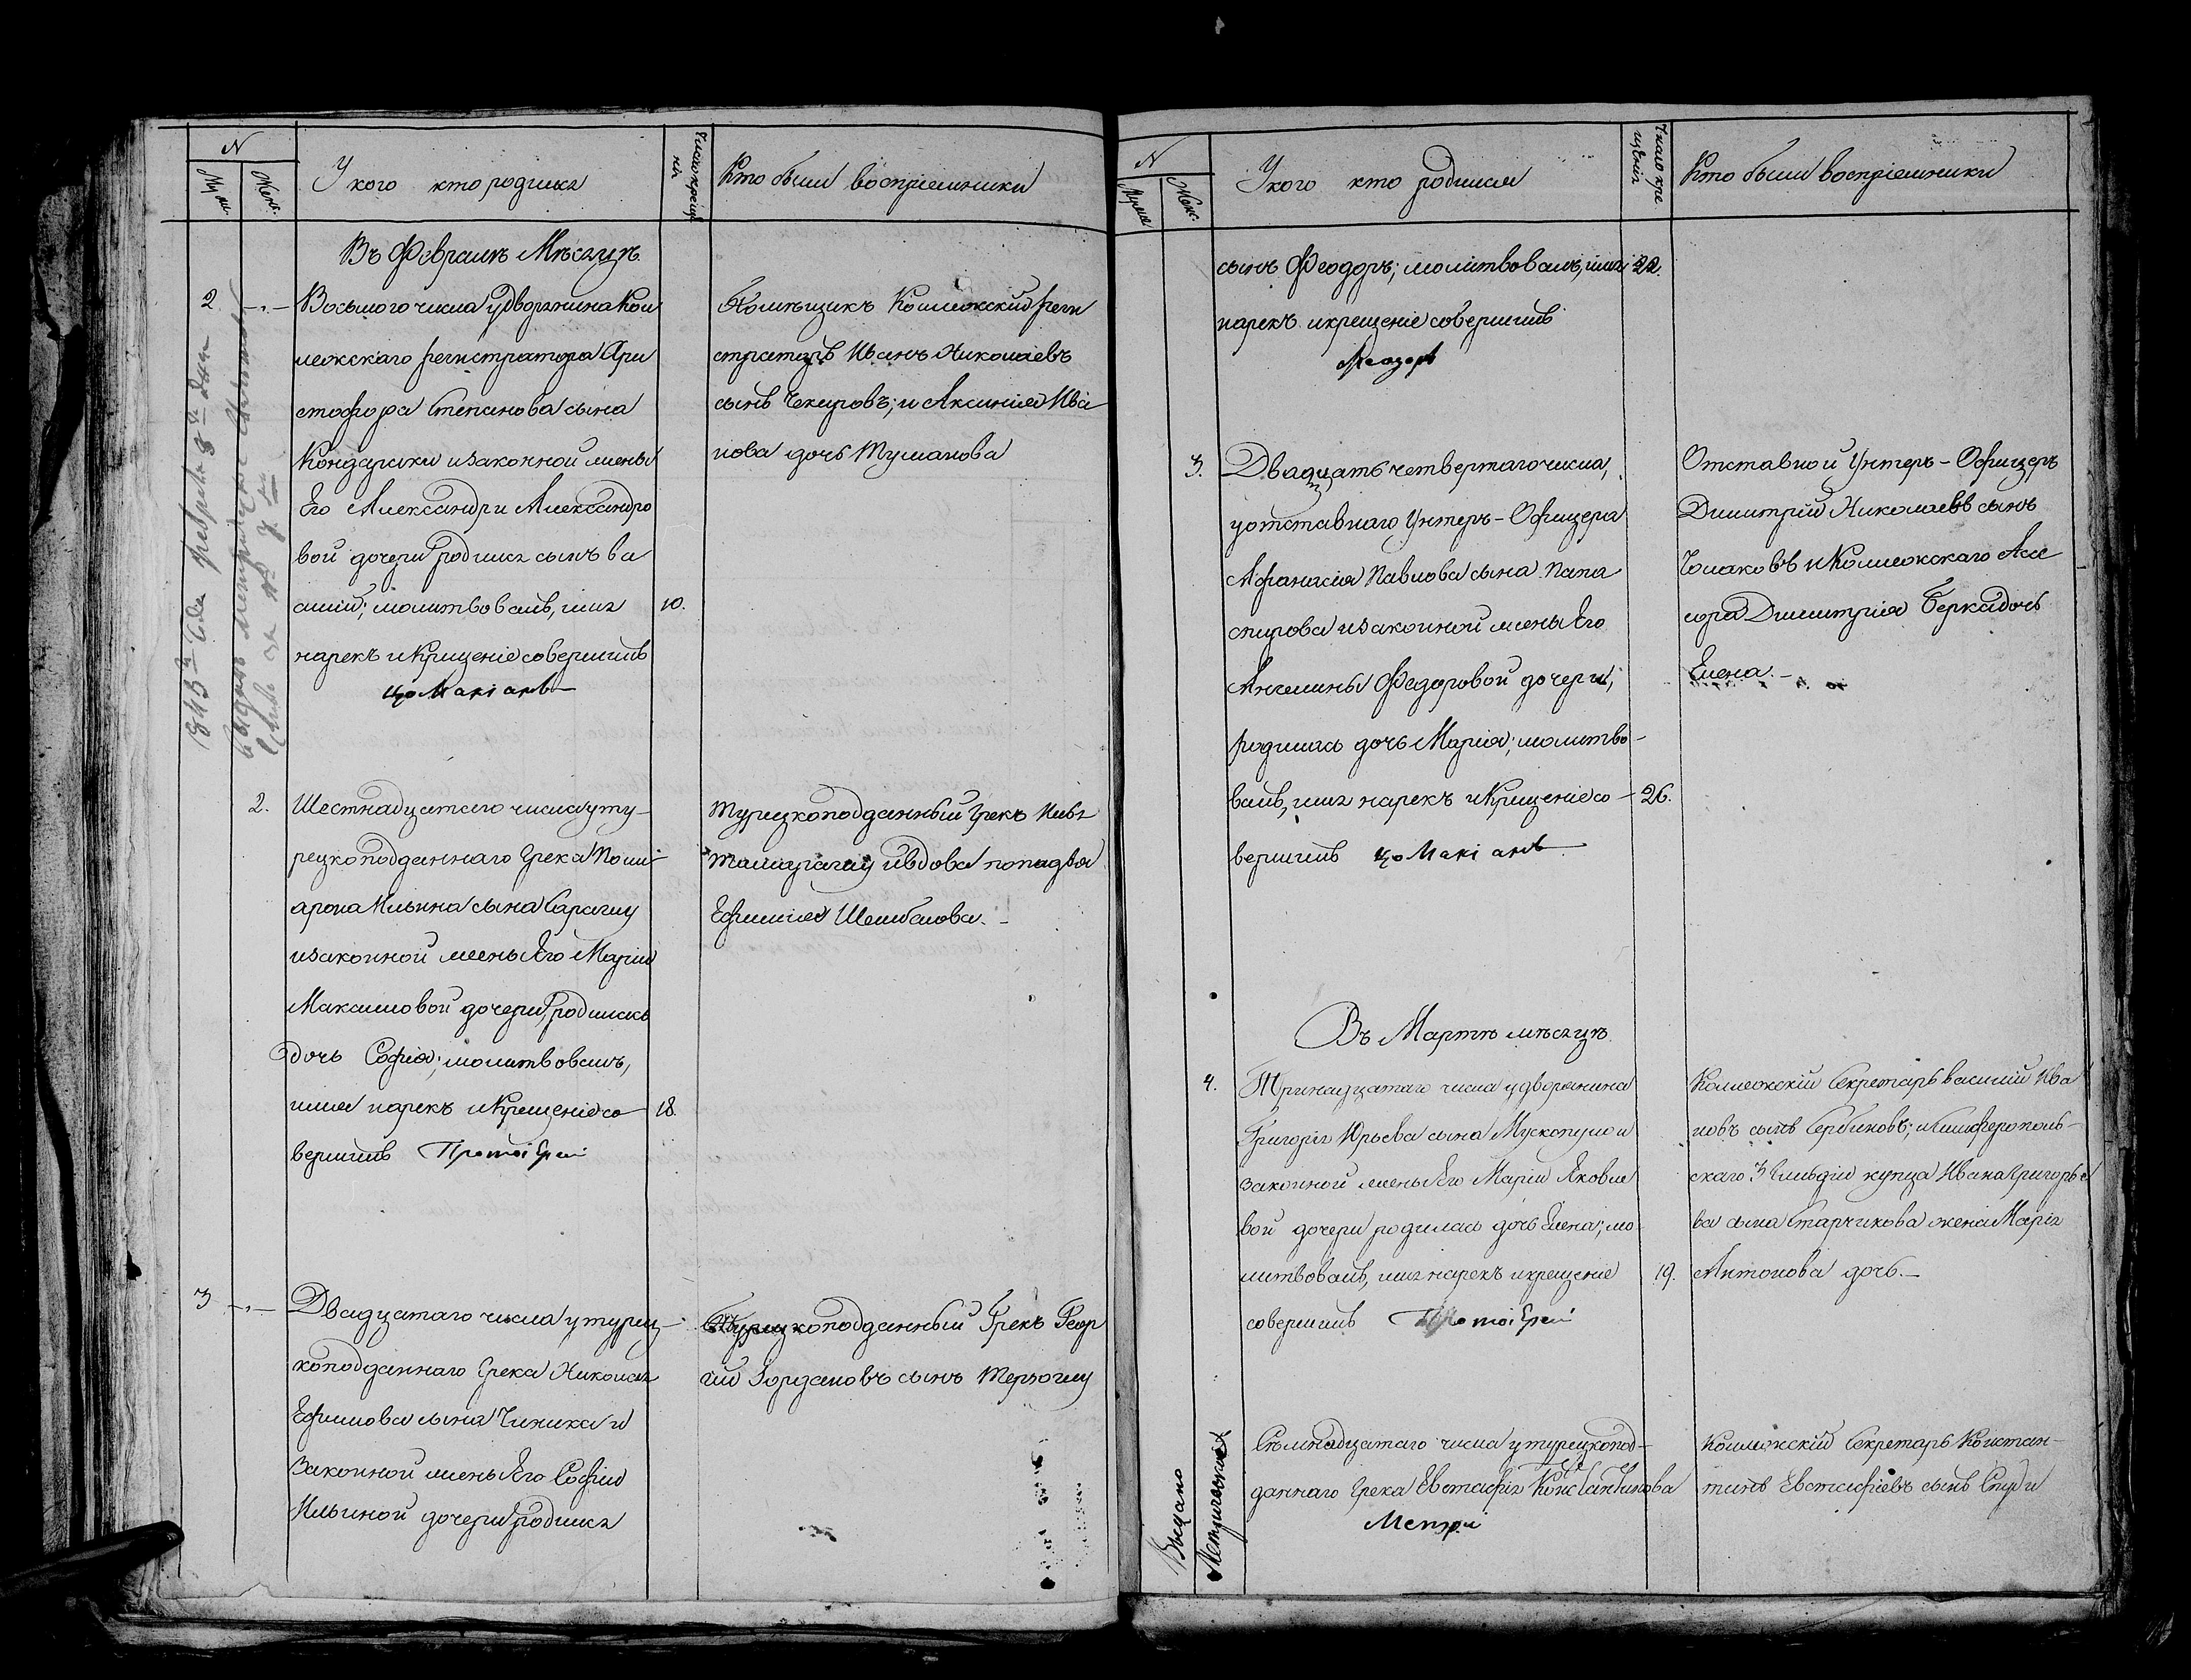 N
Муж.
Жен.
У кого кто родился
Число крещенія
Кто были воспріемники
Въ Февралѣ Мѣсяцѣ.
2
Восьмого числа у дворянина Кол
лежскаго регистратора Хри
стофора Степанова сына
Кондараки и законной жены
Его Александры Александро
вой дочери родился сынъ Ва
силій; молитвовалъ, имя
10.
нарекъ и Крещеніе совершилъ
Помѣщикъ Коллежскій реги
страторъ Иванъ Николаевъ
сынъ Чекировъ; и Аксинія Ива
нова дочь Туманова
1843 года февраля 8 дня
2.
Шестнадцатаго числа у ту-
рецкоподданнаго Грека Поли
Ильина сына
и законной жены Его Маріи
Максимовой дочери, родилась
дочь Софія; молитвовалъ,
имя нарекъ и Крещеніе со
18.
вершилъ Протоіерей
Турецкоподданный Грекъ Илья
и вдова попадья
Ефимія
3
Двадцатаго числа у турец-
коподданнаго Грека Николая
Ефимова сына и
законной жены Его Софіи
Ильиной дочери родился
Турецкоподданный Грекъ Геор
гій Іордановъ сынъ Терзоглу
N
Мужс
Женс.
У кого кто родился
Число кре
щенія
Кто были воспріемники
сынъ Феодоръ; молитвовалъ, имя
22.
нарекъ и крещеніе совершилъ
3.
Двадцать четвертаго числа,
у отставнаго Унтеръ-Офицера
Афанасія Павлова сына Папа
спирова и законной жены Его
Ангелины Федоровой дочери,
родилась дочь Марія; молитво-
валъ, имя нарекъ и Крещеніе со-
26.
вершилъ
Отставной Унтеръ-Офицеръ
Димитрій Николаевъ сынъ
Чолаковъ и Коллежскаго Ассе
сора Димитрія Берка дочь
Елена.-
Въ Мартѣ мѣсяцѣ.
4.
Тринадцатаго числа у дворянина
Григорія Юрьева сына Мускопуло и
законной жены Его Маріи Яковле
вой дочери родилась дочь Елена; мо
литвовалъ, имя нарекъ и крещеніе
19.
совершилъ Протоіерей
Коллежскій Секретарь Василій Ива
новъ сынъ Сербиновъ; и Симферополь-
скаго 3 Гильдіи купца Ивана Григорье
ва сына Старчикова жена Марія
Антонова дочь.-
Выдано
Метрическая
Сѣмнадцатаго числа у турецкопод-
даннаго Грека Евстафія Константинова
Коллежскій Секретарь Констан-
тинъ Евстафіевъ сынъ Спуди